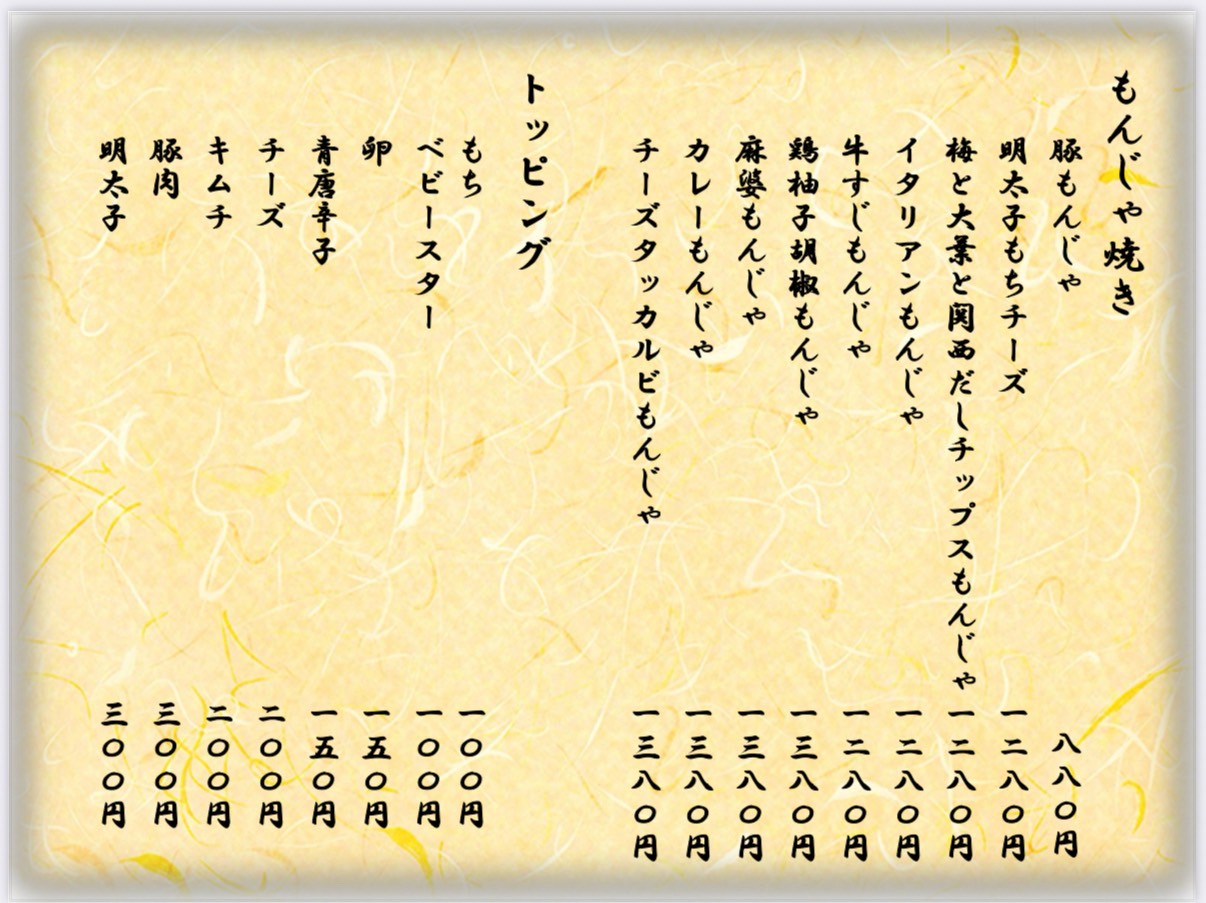 もんじゃ焼き
豚もんじゃ 八八〇円
明太子もちチーズ 一二八〇円
梅と大葉と関西だしチップスもんじゃ 一二八〇円
イタリアンもんじゃ 一二八〇円
牛すじもんじゃ 一二八〇円
鶏柚子胡椒もんじゃ 一三八〇円
麻婆もんじゃ 一三八〇円
カレーもんじゃ 一三八〇円
チーズタッカルビもんじゃ 一三八〇円
トッピング
もち 一〇〇円
ベビースター 一〇〇円
卵 一五〇円
青唐辛子 一五〇円
チーズ 二〇〇円
キムチ 二〇〇円
豚肉 三〇〇円
明太子 三〇〇円